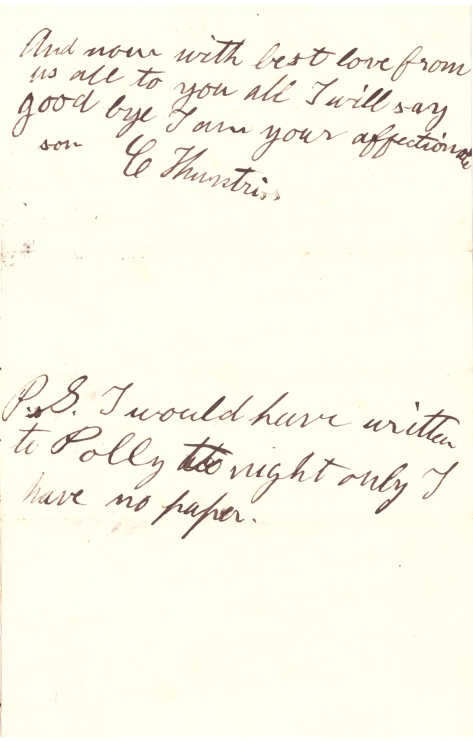 And now with best love from
us all to you all I will say
good bye I am your affectionate
son C
P.S. I would have written
to Polly to night only I
have no paper.